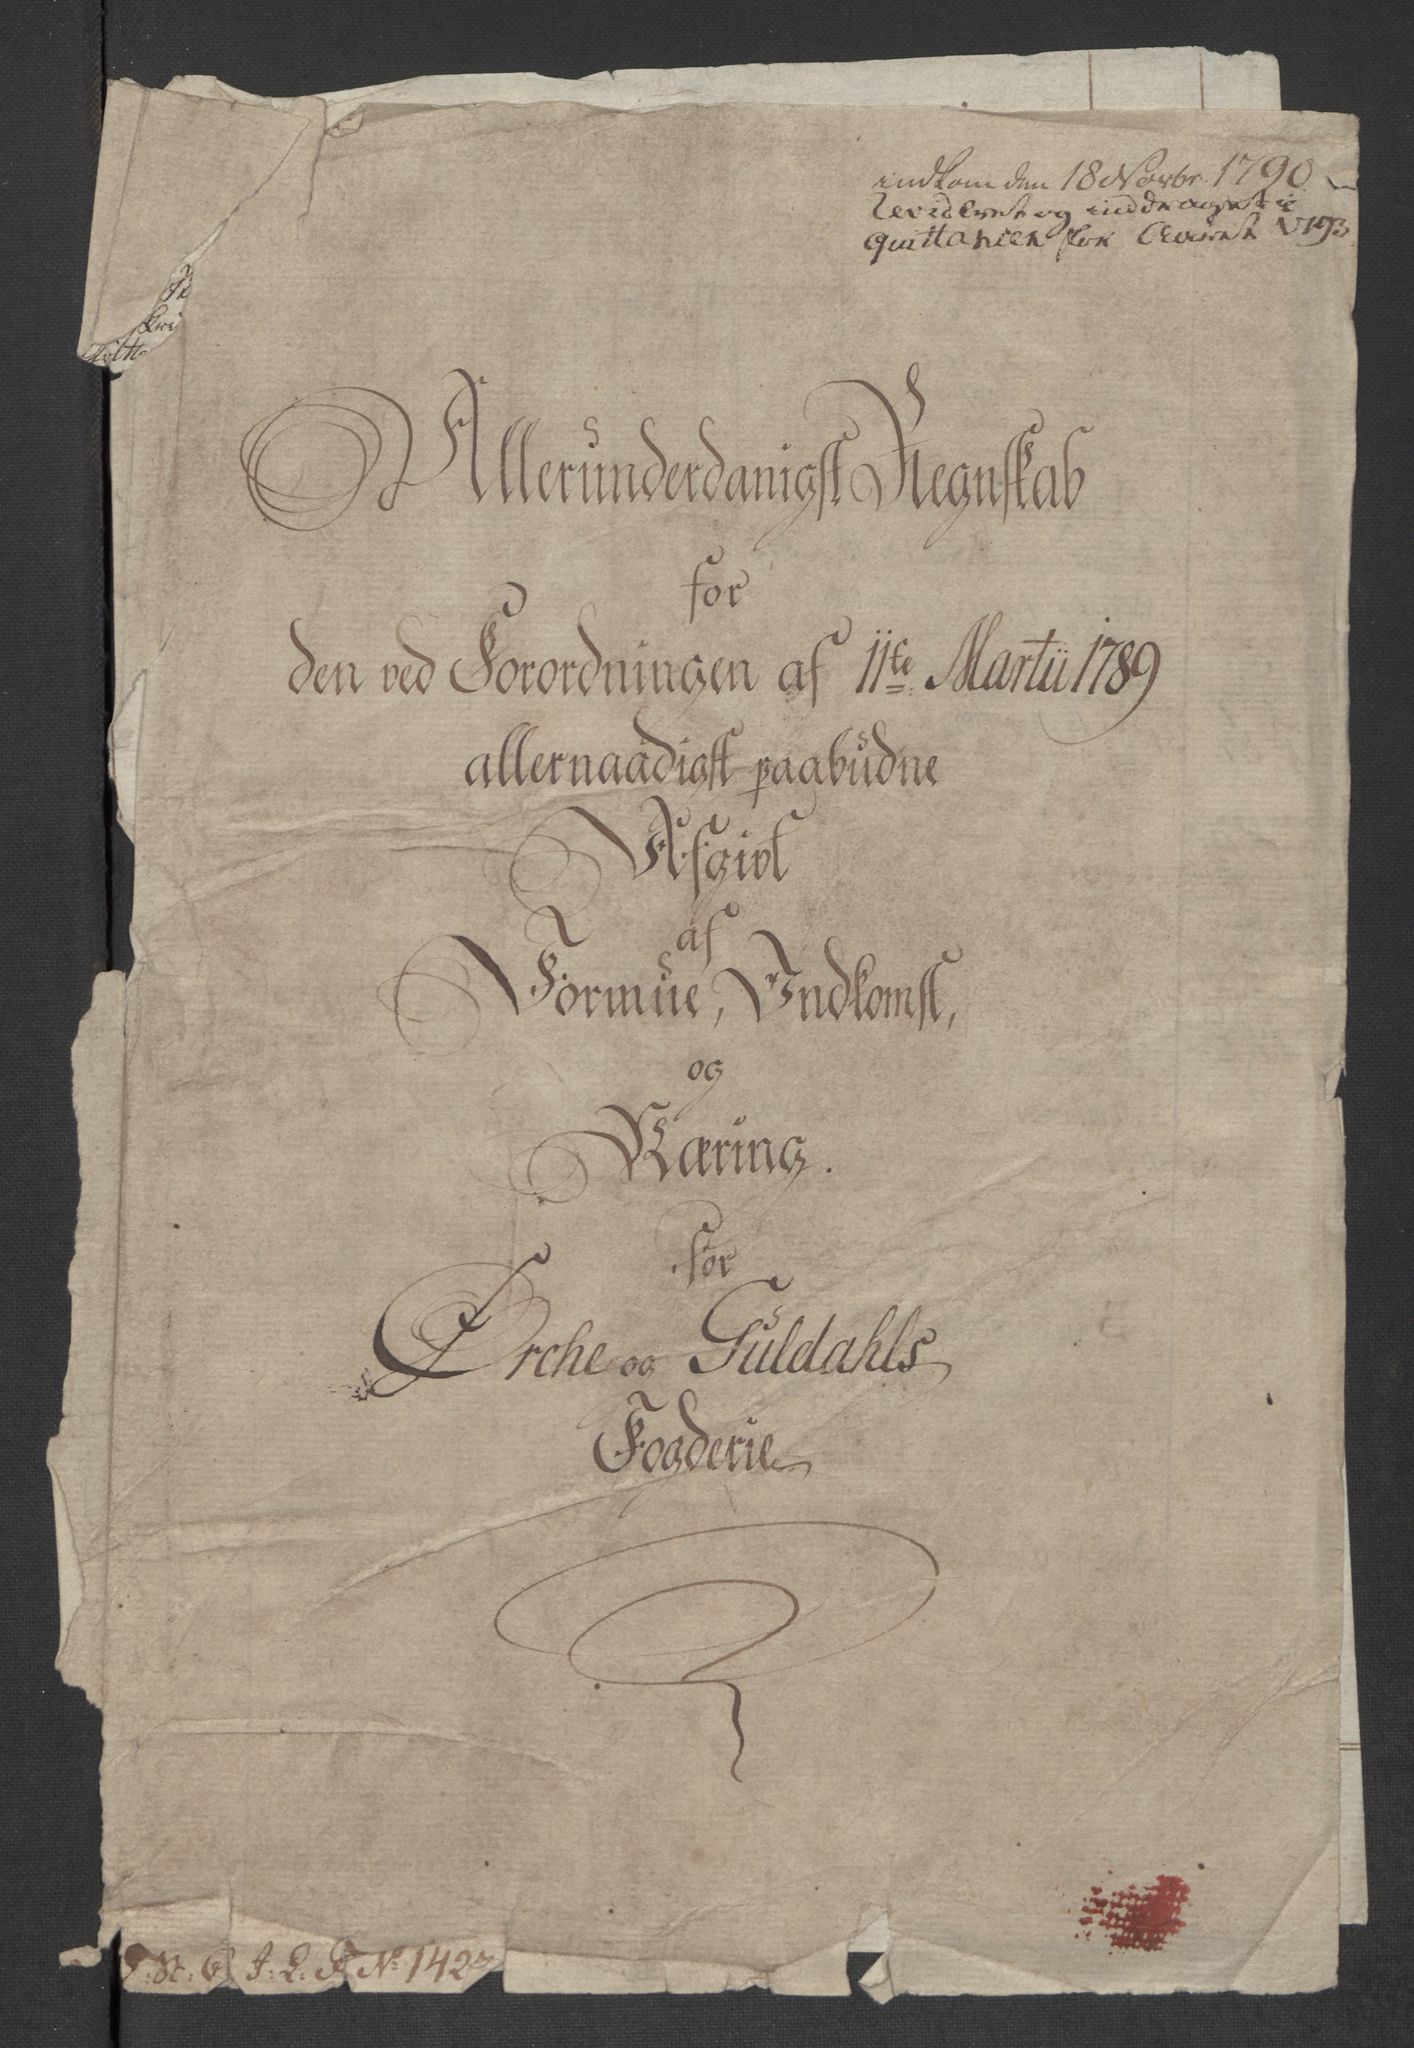 indkom den 18 Novbr. 1790.
Revideret og inddraget i
quittancen for Aaret
Allerunderdanigst Regnskab
for
den ved Forordningen af 11te Martii 1789
allernaadigst paabudne
Afgivt
af
Formue, Indkomst,
og
Næring.
for
Ørche og Guldahls
Fogderie